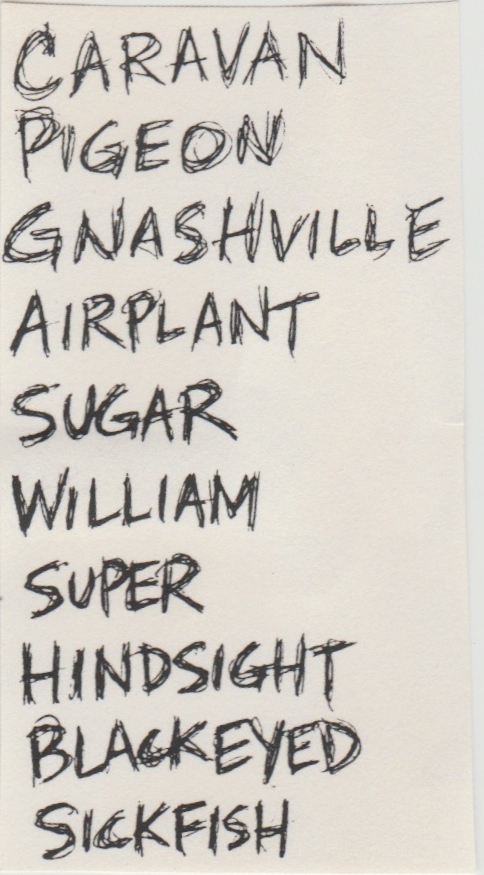 CARAVAN
PIGEON
GNASHVILLE
AIRPLANT
SUGAR
WILLIAM
SUPER
HINDSIGHT
BLACKEYED
SICKFISH